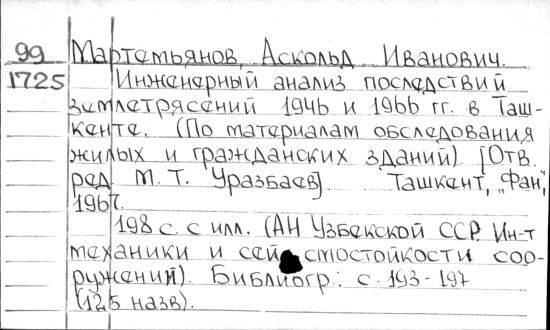 99 Мартемьянов, Аскольд Иванович.
1725 Инженерный анализ последствий
землетрясений 1946 и 1966 гг. в Таш-
кенте. (По материалам обследования
жилых и гражданских зданий) [Отв.
ред. М. Т. Уразбаев] Ташкент, "Фан",
1967.
198 с. с илл. (АН Узбекской ССР. Ин-т
механики и сейсмостойкости соо-
ружений). Библиогр.: с. 193-197
(125 назв).